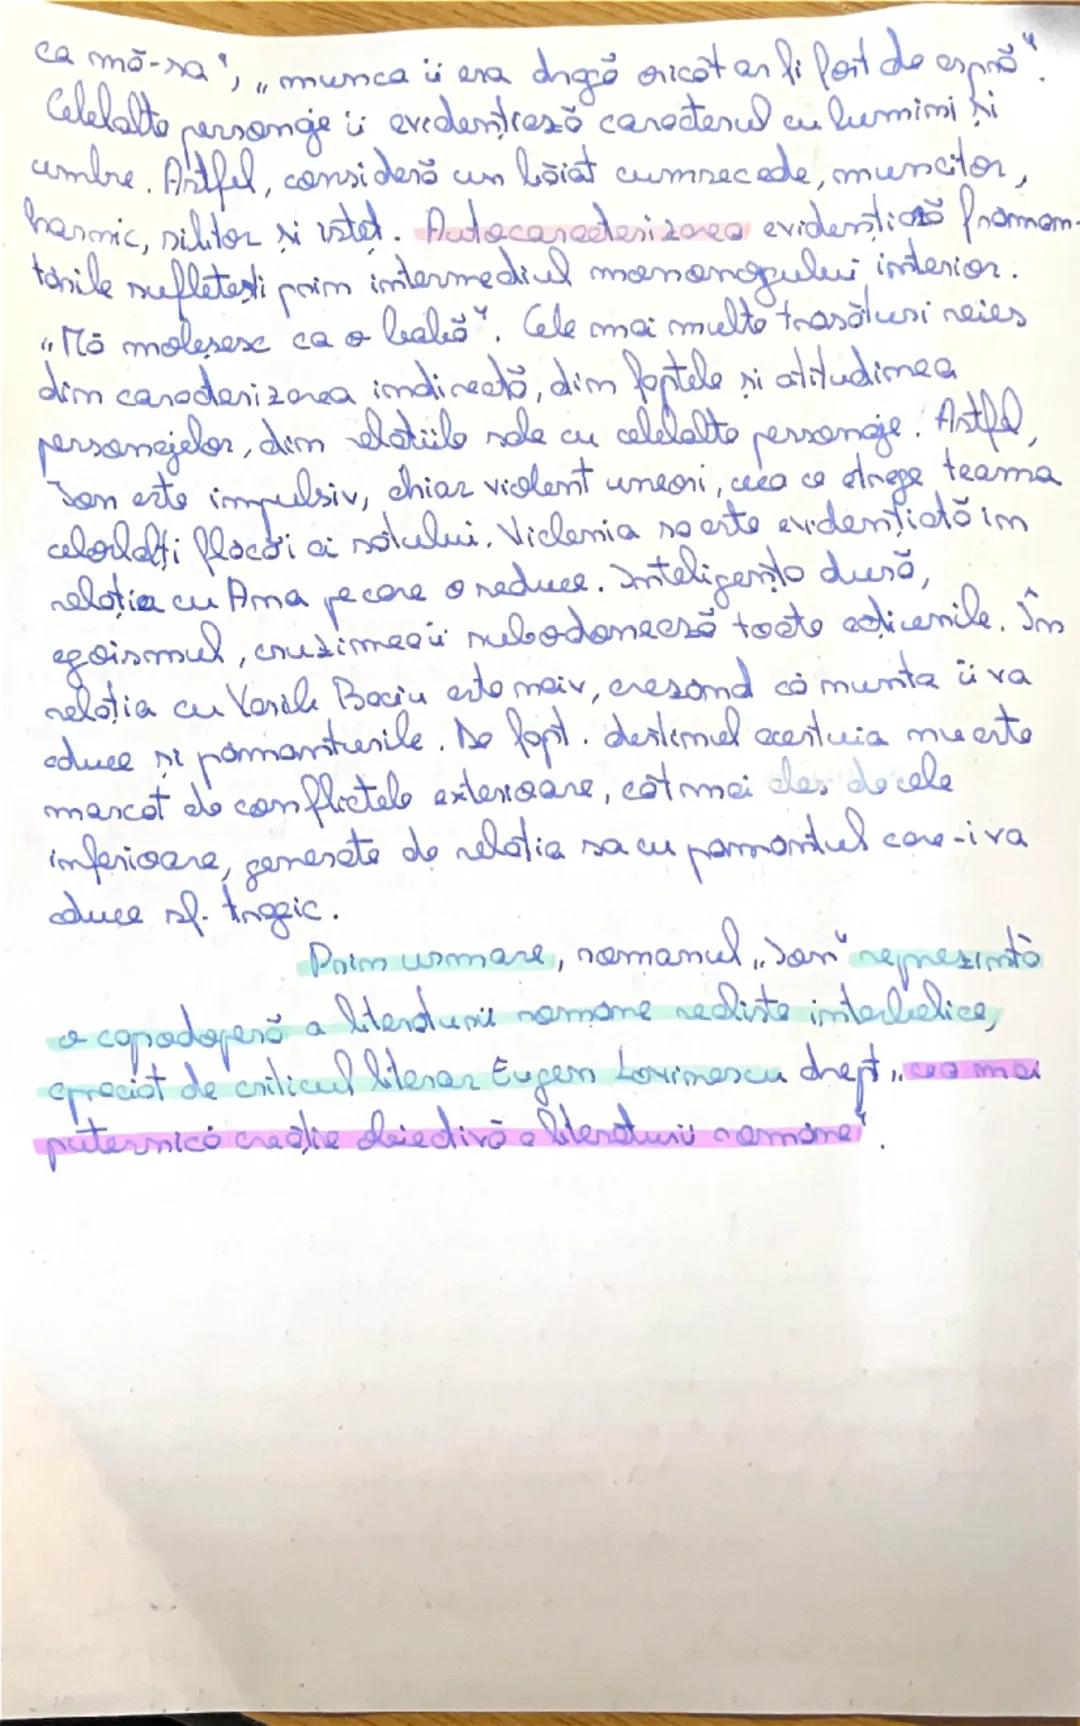 ca mă-sa", „munca îi era dragă oricât ar fi fost de aspră".
Celelalte personaje îi evidențiază caracterul cu lumini și
umbre. Astfel, consideră un băiat cumsecade, muncitor,
harnic, silitor și isteț. Autocaracterizarea evidențiază frămân-
tările sufletești prin intermediul monomogului interior.
„Mă moleșesc ca o babă". Cele mai multe trasături reies
din caracterizarea indirectă, din faptele și atitudinea
personajelor, din relațiile sale cu celelalte personaje. Astfel,
Ion este impulsiv, chiar violent uneori, ceea ce atrage teama
celorlalți flăcăi ai satului. Viclenia sa este evidențiată în
relația cu Ana pe care o seduce. Inteligența dură,
egoismul, cruzimea îi subodonează toate acțiunile. În
relația cu Vasile Baciu este naiv, crezând că nunta îi va
aduce și pământurile. De fapt. destinul acestuia nu este
marcat de conflictele exterioare, cât mai ales de cele
inferioare, generate de relația sa cu pământul care-i va
aduce sf. tragic.
Prin urmare, romanul „Ion" reprezintă
o capodoperă a literaturii române realiste interbelice,
apreciat de criticul literar Eugen Lovinescu drept „cea mai
puternică creație obiectivă a literaturii române".